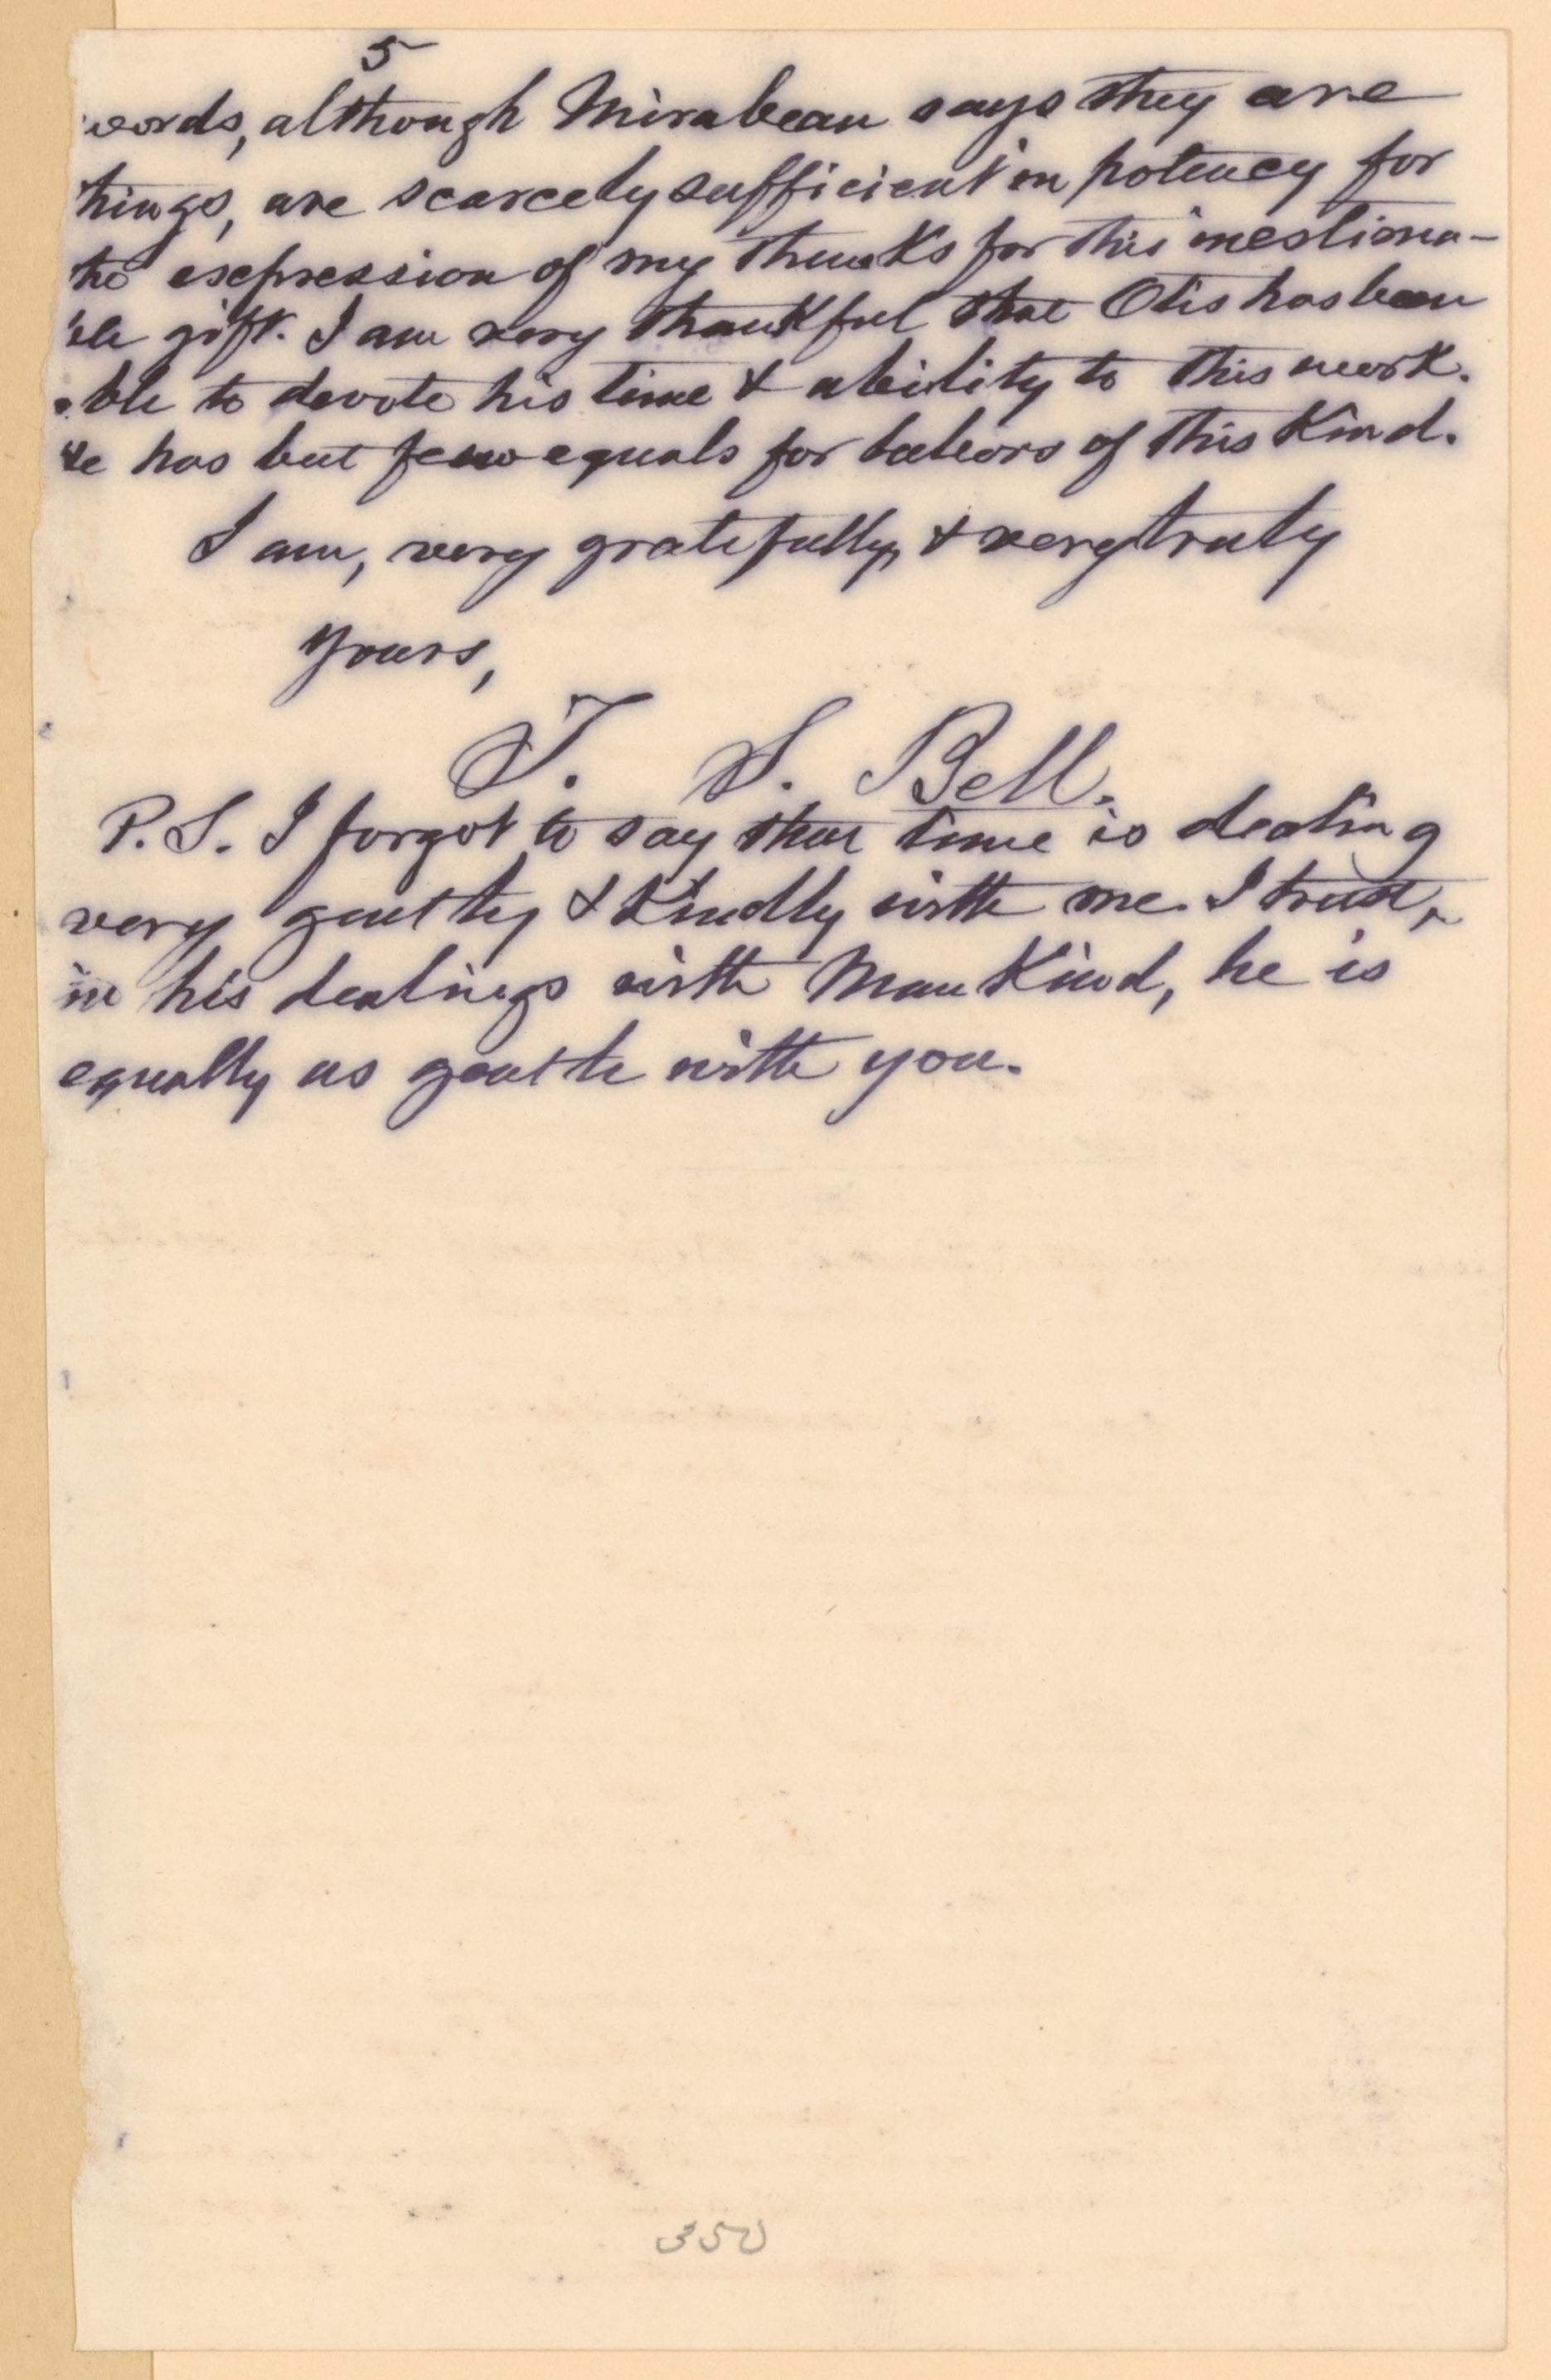 5
words, although Mirabeau says they are
things, are scarcely sufficient in potency for
the expression of my thanks for this inestima-
ble gift. I am very thankful that Otis has been
able to devote his time & ability to this work.
He has but few equals for labors of this kind.
I am, very gratefully, & very truly
yours,
T. S. Bell.
P.S. I forgot to say that time is dealing
very gently & kindly with me. I trust,
in his dealings with Mankind, he is
equally as gentle with you.
350